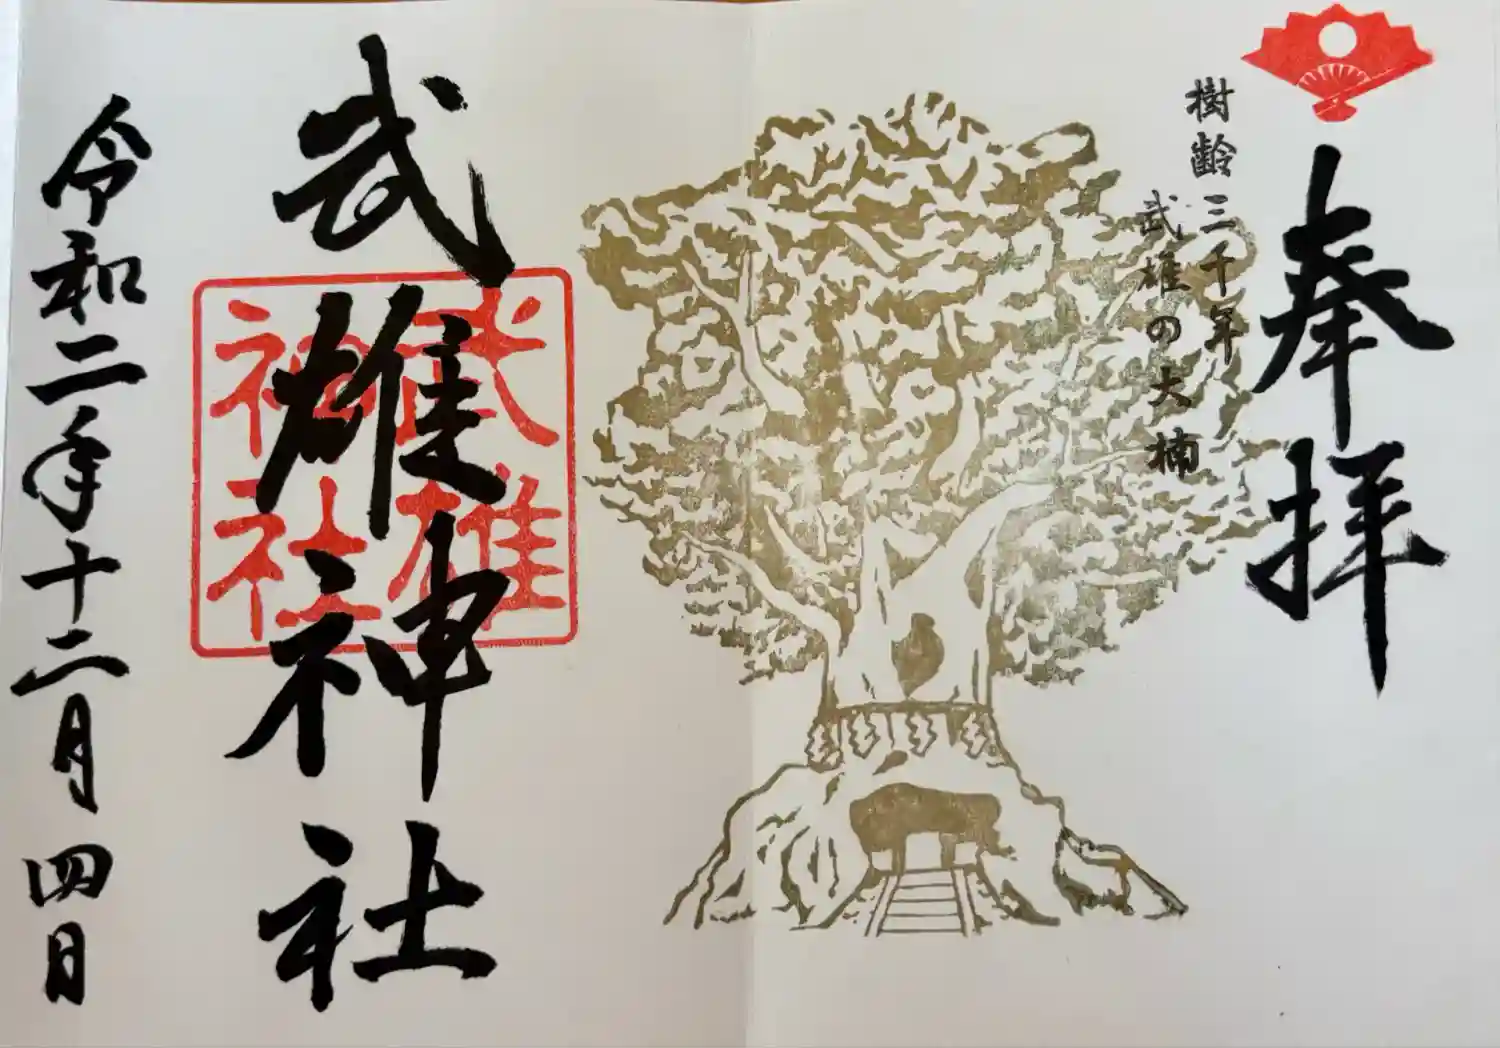 奉拝
樹齢三千年
武雄の大楠
武雄神社
武雄
神社
令和二年十二月四日